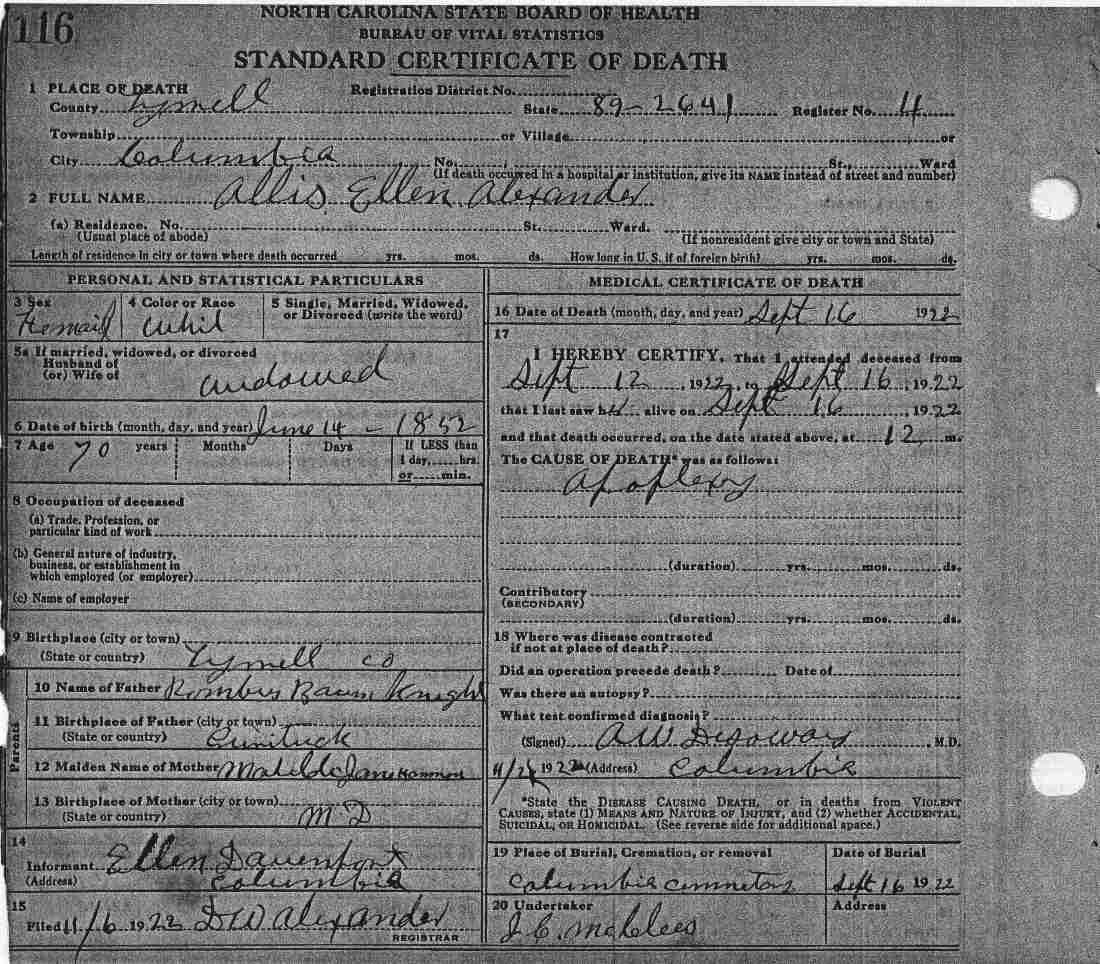 116
NORTH CAROLINA STATE BOARD OF HEALTH
BUREAU OF VITAL STATISTICS
STANDARD CERTIFICATE OF DEATH
1 PLACE OF DEATH Registration District No.
County Tyrrell State 89-2641 Register No. 4
Township or Village or
City Columbia No. , St., Ward
(If death occurred in a hospital or institution, give its NAME instead of street and number)
2 FULL NAME Allis Ellen Alexander
(a) Residence. No. St. Ward.
(Usual place of abode) (If nonresident give city or town and State)
Length of residence in city or town where death occurred yrs. mos. ds. How long in U. S. if of foreign birth? yrs. mos. ds.
PERSONAL AND STATISTICAL PARTICULARS
3 Sex 4 Color or Race 5 Single, Married, Widowed,
or Divorced (write the word)
Femail Whit
5a If married, widowed, or divorced
Husband of
(or) Wife of
widowed
6 Date of birth (month, day, and year) June 14 - 1852
7 Age 70 years Months Days If LESS than
1 day, hrs.
or min.
8 Occupation of deceased
(a) Trade, Profession, or
particular kind of work
(b) General nature of industry,
business, or establishment in
which employed (or employer)
(c) Name of employer
9 Birthplace (city or town)
(State or country) Tyrrell co
Parents
10 Name of Father Baum Knight
11 Birthplace of Father (city or town)
(State or country) Currituck
12 Maiden Name of Mother Matilda Jane
13 Birthplace of Mother (city or town)
(State or country) M D
14
Informant Ellen Davenport
(Address) Columbia
15
Filed 11/6 1922 D W Alexander
REGISTRAR
MEDICAL CERTIFICATE OF DEATH
16 Date of Death (month, day, and year) Sept 16 1922
17
I HEREBY CERTIFY, That I attended deceased from
Sept 12, 1922, to Sept 16, 1922
that I last saw h alive on Sept 16, 1922
and that death occurred, on the date stated above, at 12 m.
The CAUSE OF DEATH* was as follows:
Apoplexy
(duration) yrs. mos. ds.
Contributory
(SECONDARY)
(duration) yrs. mos. ds.
18 Where was disease contracted
if not at place of death?
Did an operation precede death? Date of
Was there an autopsy?
What test confirmed diagnosis?
(Signed) A W M.D.
1922 (Address) Columbia
*State the DISEASE CAUSING DEATH, or in deaths from VIOLENT
CAUSES, state (1) MEANS AND NATURE OF INJURY, and (2) whether ACCIDENTAL,
SUICIDAL, OR HOMICIDAL. (See reverse side for additional space.)
19 Place of Burial, Cremation, or removal Date of Burial
Columbia Sept 16 1922
20 Undertaker Address
J. C. McClees